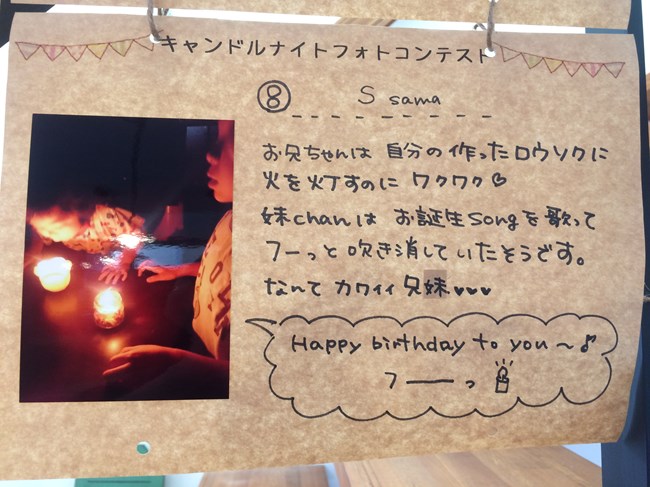 キャンドルナイトフォトコンテスト
⑧ S sama
お兄ちゃんは 自分の作ったロウソクに
火を灯すのに ワクワク♡
妹chanは お誕生Songを歌って
フーっと 吹き消していたそうです。
なんて カワイイ 兄妹♥♥♥
Happy birthday to you〜♪
フーーっ